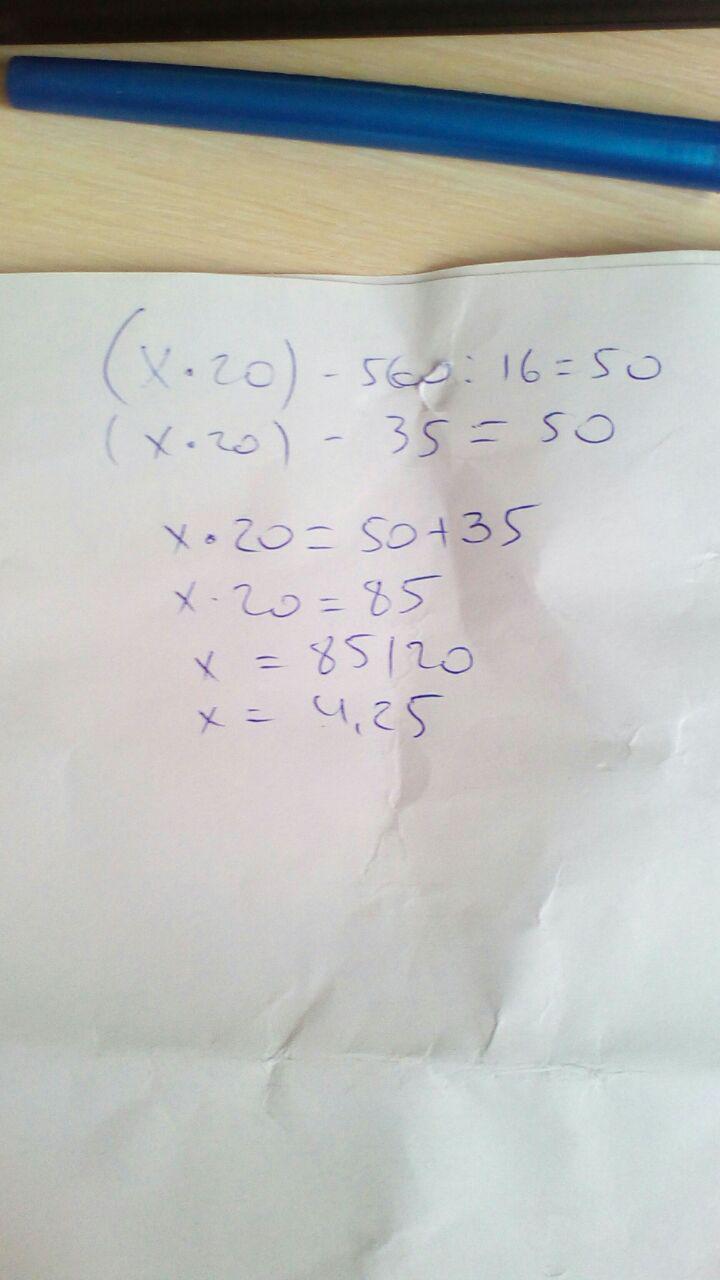 (x·20) - 560 : 16 = 50
(x·20) - 35 = 50
x·20 = 50+35
x·20 = 85
x = 85/20
x = 4,25